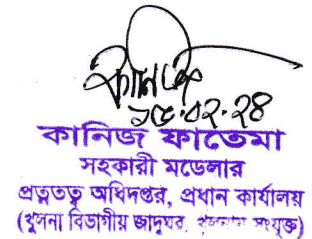 কানিজ
১৫.০২.২৪
কানিজ ফাতেমা
সহকারী মডেলার
প্রত্নতত্ত্ব অধিদপ্তর, প্রধান কার্যালয়
(খুলনা বিভাগীয় জাদুঘর, খুলনায় সংযুক্ত)